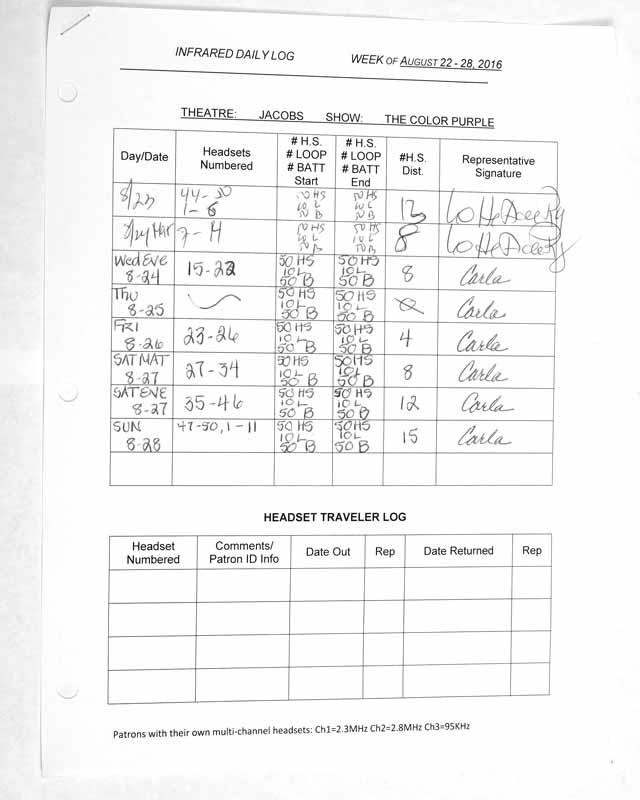 INFRARED DAILY LOG WEEK OF AUGUST 22 - 28, 2016
THEATRE: JACOBS SHOW: THE COLOR PURPLE
Day/Date Headsets Numbered # H.S. # LOOP # BATT Start # H.S. # LOOP # BATT End #H.S. Dist. Representative Signature
8/23 44-50 1-6 50 HS 10 L 50 B 50 HS 10 L 50 B 13
8/24 Mat 7-14 50 HS 10 L 50 B 50 HS 10 L 50 B 8
Wed EVE 8-24 15-22 50 HS 10 L 50 B 50 HS 10 L 50 B 8 Carla
THU 8-25 50 HS 10 L 50 B 50 HS 10 L 50 B Carla
FRI 8-26 23-26 50 HS 10 L 50 B 50 HS 10 L 50 B 4 Carla
SAT MAT 8-27 27-34 50 HS 10 L 50 B 50 HS 10 L 50 B 8 Carla
SAT EVE 8-27 35-46 50 HS 10 L 50 B 50 HS 10 L 50 B 12 Carla
SUN 8-28 47-50, 1-11 50 HS 10 L 50 B 50 HS 10 L 50 B 15 Carla
HEADSET TRAVELER LOG
Headset Numbered Comments/ Patron ID Info Date Out Rep Date Returned Rep
Patrons with their own multi-channel headsets: Ch1=2.3MHz Ch2=2.8MHz Ch3=95KHz